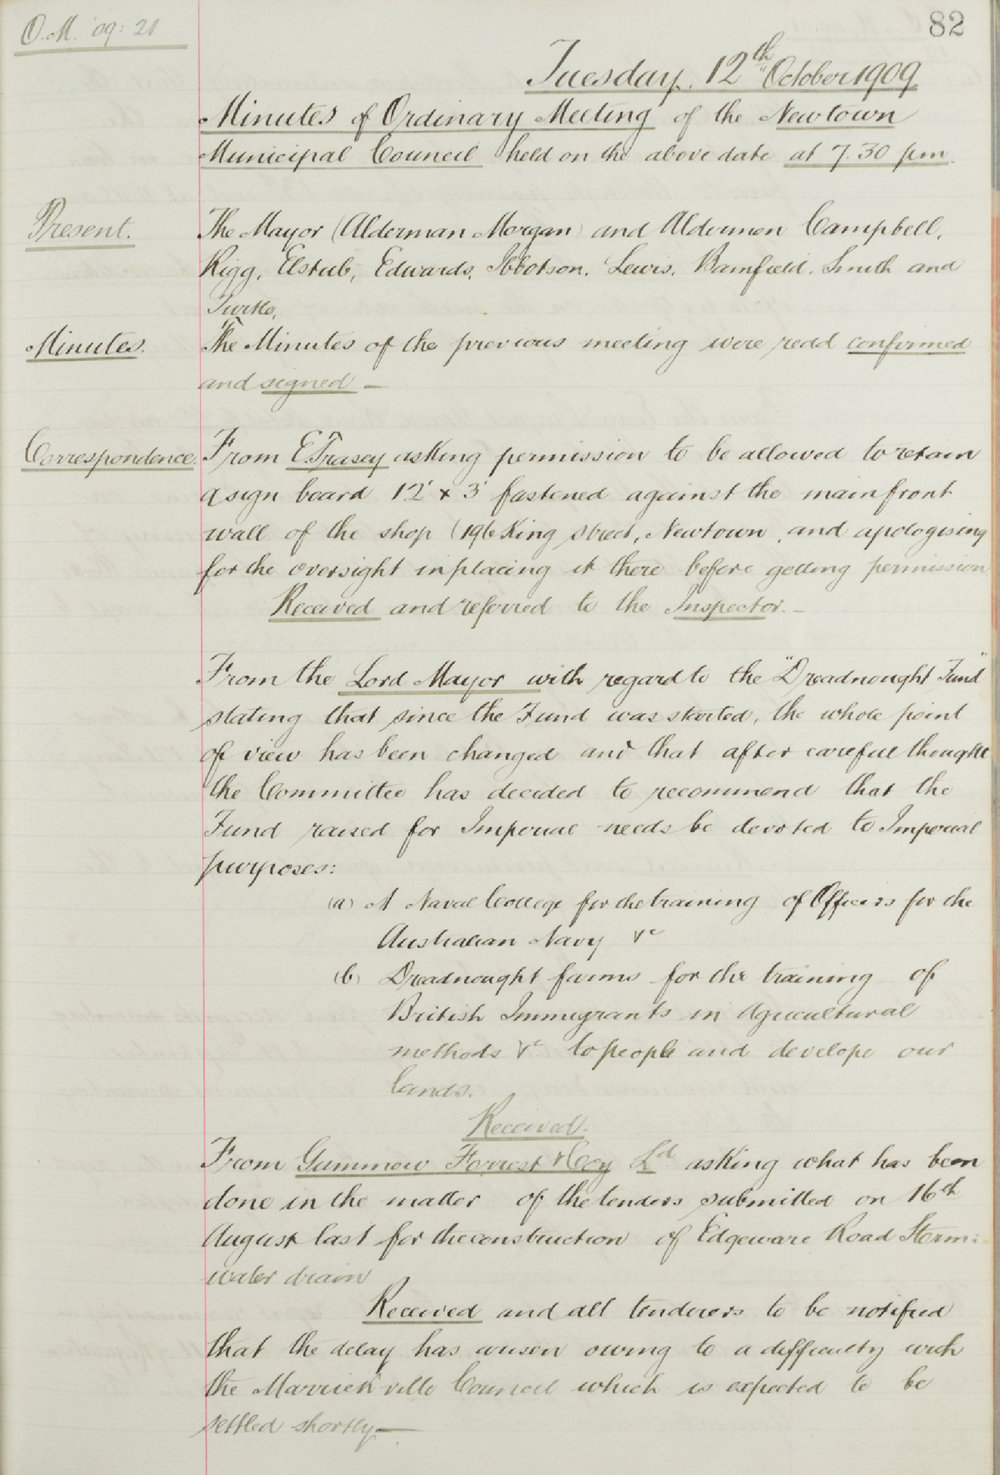 O.M. '09: 21
82
Tuesday, 12th October 1909
Minutes of Ordinary Meeting of the Newtown
Municipal Council held on the above date at 7.30 pm.
Present.
The Mayor (Alderman Morgan) and Aldermen Campbell,
Rigg, Elstub, Edwards, Ibbotson, Lewis, Bamfield, Smith and
Turtle.
Minutes.
The Minutes of the previous meeting were read confirmed
and signed —
Correspondence.
From E. Trasey asking permission to be allowed to retain
a sign board 12' x 3' fastened against the main front
wall of the shop (196 King Street, Newtown, and apologising
for the oversight in placing it there before getting permission
Received and referred to the Inspector. —
From the Lord Mayor with regard to the "Dreadnought Fund"
stating that since the Fund was started, the whole point
of view has been changed and that after careful thought
the Committee has decided to recommend that the
Fund raised for Imperial needs be devoted to Imperial
purposes:
(a) A Naval College for the training of Officers for the
Australian Navy &c
(b) Dreadnought farms for the training of
British Immigrants in Agricultural
methods &c to people and develope our
lands.
Received.
From Gummow Forrest & Coy Ld asking what has been
done in the matter of the tenders submitted on 16th
August last for the construction of Edgeware Road Storm:
water drain
Received and all tenderers to be notified
that the delay has arisen owing to a difficulty with
the Marrickville Council which is expected to be
settled shortly —